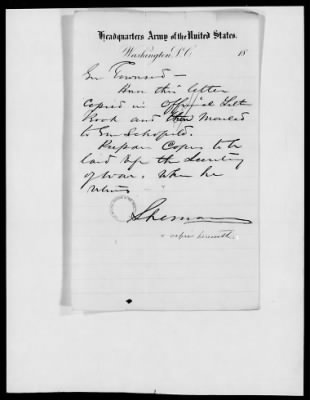 Headquarters Army of the United States.
Washington, D.C. 18
Gen Townsend —
Have this letter
copied in Official Let
Book and then mailed
to Gen Schofield.
Prepare Copies to be
laid before the Secretary
of War. When he
returns
Sherman
copies herewith